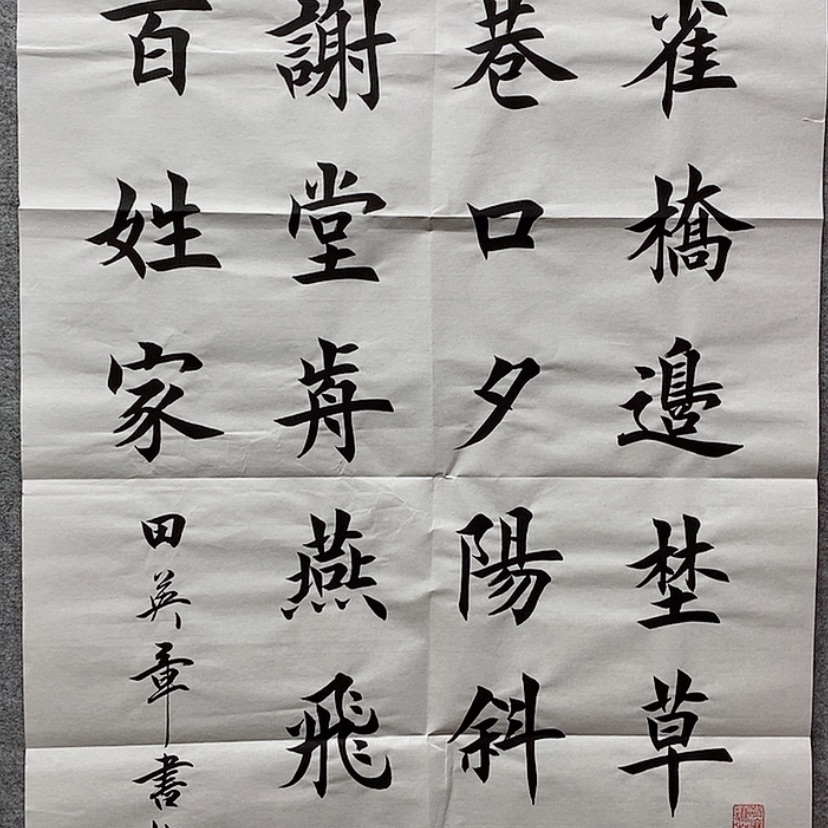 雀橋邊埜草
巷口夕陽斜
謝堂歬燕飛
百姓家
田英章書